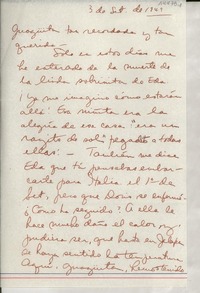 3 de Set. de 1949
tan recordada y tan
querida:
Sólo en estos días me
he enterado de la muerte de
la linda sobrinita de Eda
¡Ya me imagino cómo estarán
allá! Esa niñita era la
alegría de esa casa "era un
rayito de sol" pegado a todas
ellas. — También me dice
Eda que tú pensabas embar-
carte para Italia el 1º de
Set, pero que Doris se enfermó
¿Cómo ha seguido? A ella le
hace mucho daño el calor y
pudiera ser, que hasta en Jalapa
se haya sentido la temperatura
Aquí, hemos tenido